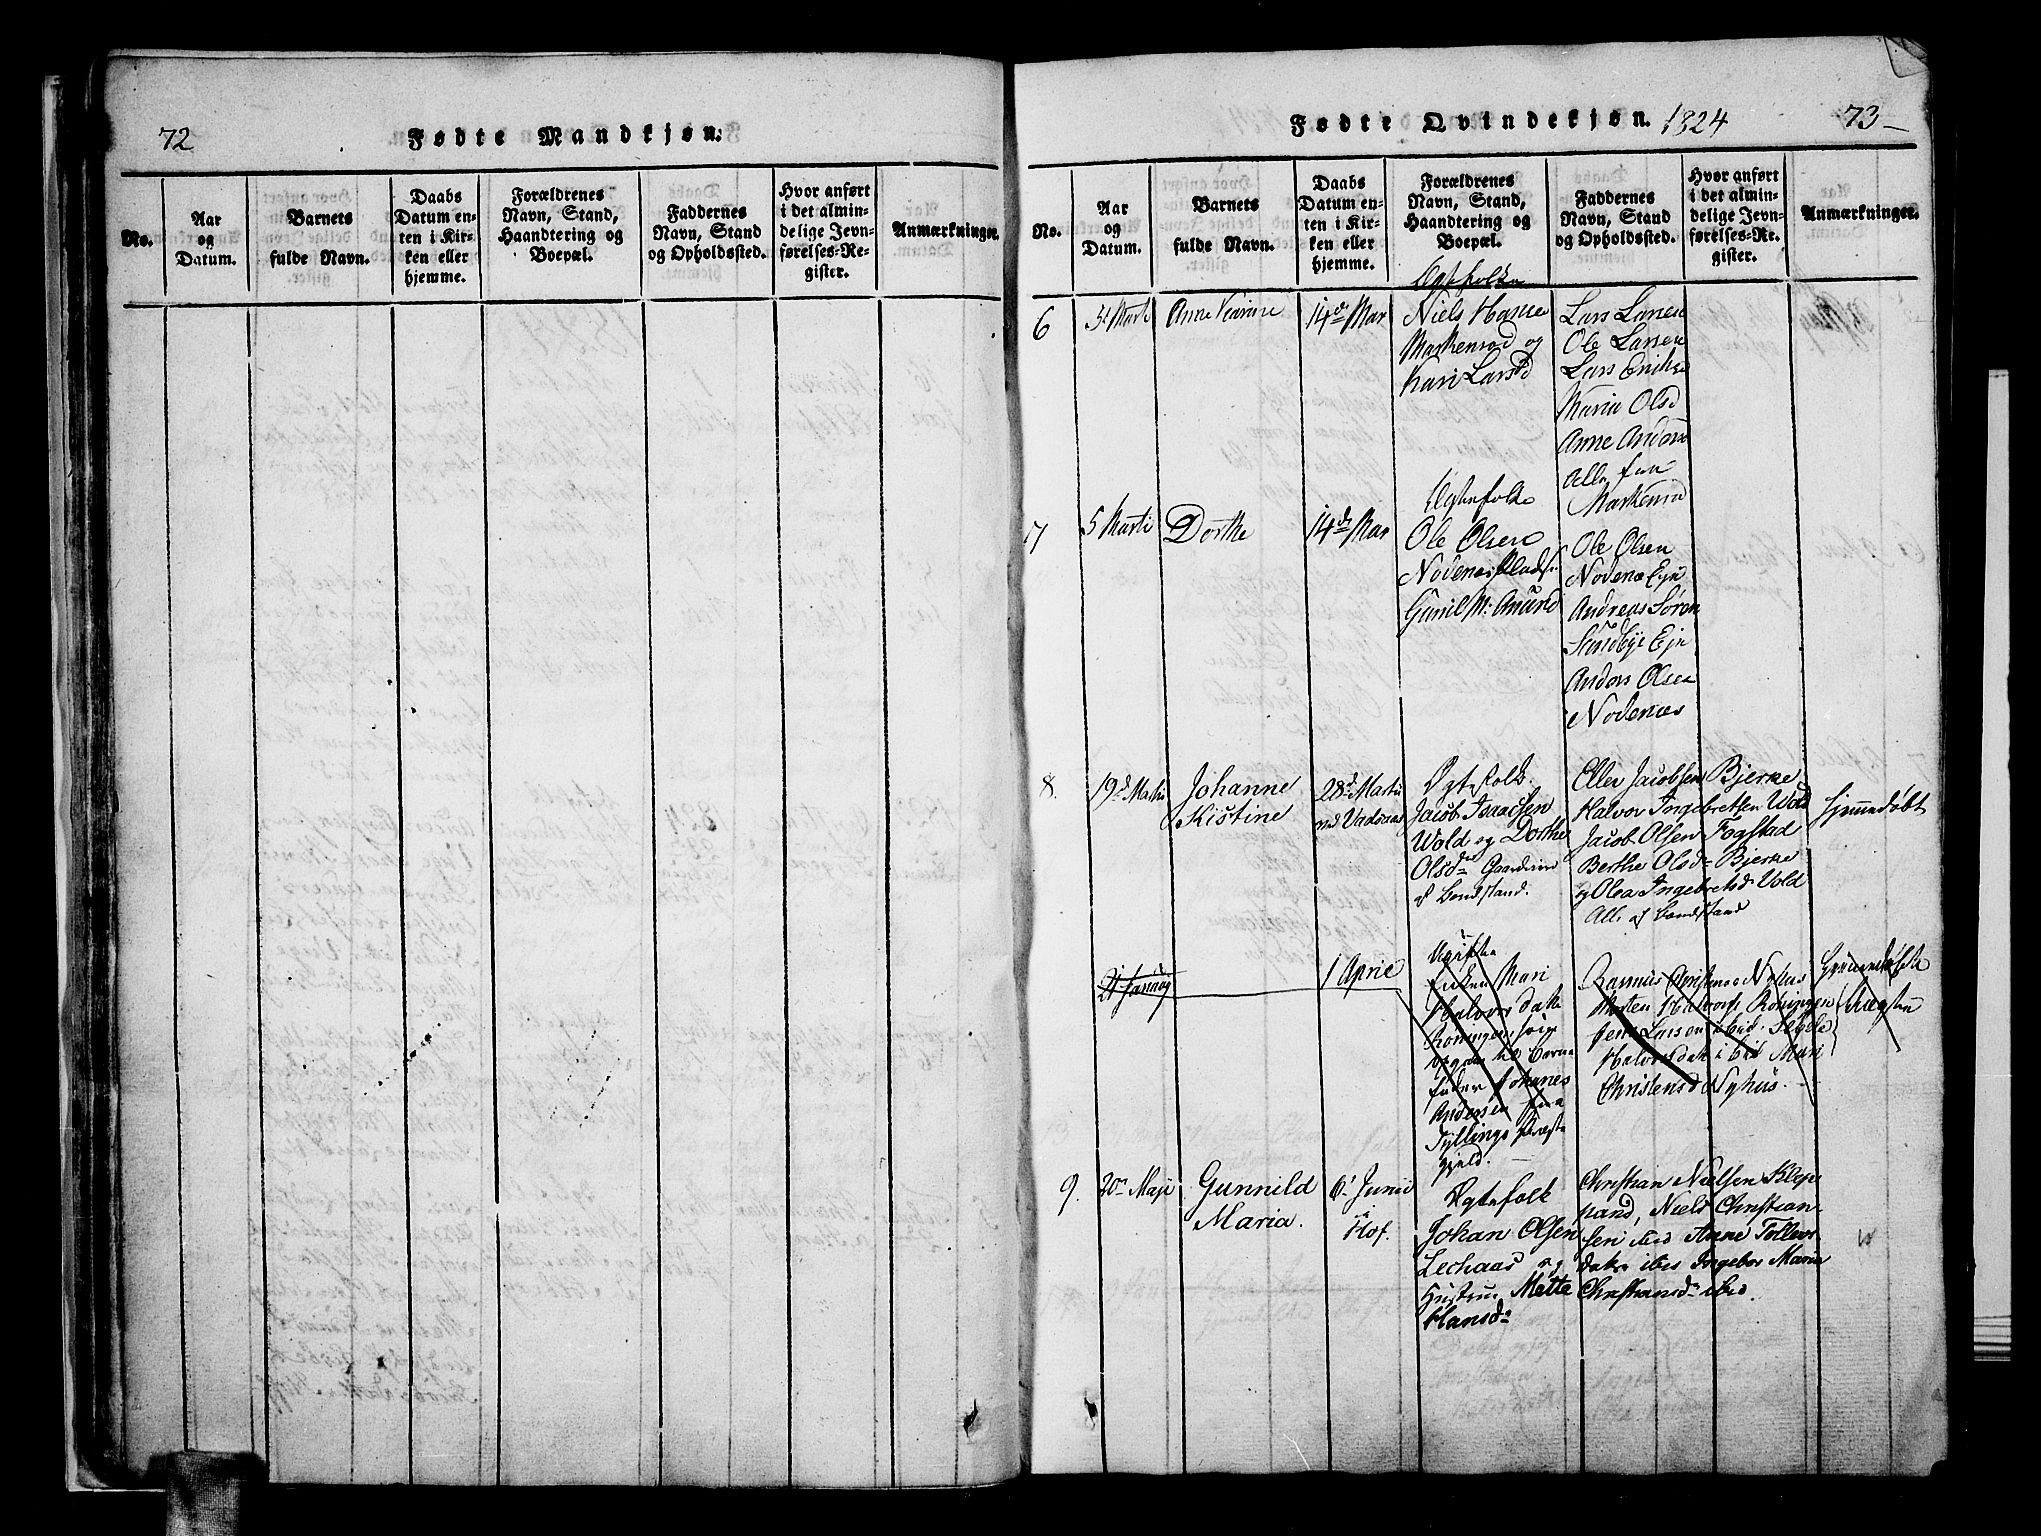 72
Fødte Mandkjøn.
No.
Aar
og
Datum.
Barnets
fulde Navn.
Daabs
Datum en-
ten i Kir-
ken eller
hjemme.
Forældrenes
Navn, Stand,
Haandtering og
Boepæl.
Faddernes
Navn, Stand
og Opholdssted.
Hvor anført
i det almin-
delige Jevn-
førelses-Re-
gister.
Anmærkninger.
Fødte Qvindekjøn. 1824
73
No.
Aar
og
Datum.
Barnets
fulde Navn.
Daabs
Datum en-
ten i Kir-
ken eller
hjemme.
Forældrenes
Navn, Stand,
Haandtering og
Boepæl.
Faddernes
Navn, Stand
og Opholdssted.
Hvor anført
i det almin-
delige Jevn-
førelses-Re-
gister.
Anmærkninger.
6
Marti
Anne Karine
14de Mar
Ægtefolkene
Niels Hanse
Markensrød og
Kari Larsd
Lars Larsen
Ole Larsen
Lars Erikse
Maria Olsd
Anne Anders
Alle fra
Markensrød
7
5 Marti
Dorthe
14de Mar
Ægtefolke
Ole Olsen
Nodenes Pladsf.
Gunil M: Amund
Ole Olsen
Nodenæ Ejn
Andreas Søren
Sundbye Ejn
Anders Olsen
Nodenæs
8.
19de Martii
Johanne
Kistine
28de Martii
Ægtefolk.
Jacob Isaacsen
Wold og Dorthe
Olsdr Gaardmænd
af Bondestand.
Eller Jacobsen Bjerke
Halvor Ingebretsen Wold
Jacob Olsen Fogstad
Berthe Olsd- Bjerke
og Olea Ingebretsd Vold
Alle af Bondestand
Hjemmedøbt
21 Januar
1 April
Ugifte
Enken Mari
Halvorsdatter
Roningen, som
opgav til Barne
fader Johannes
Andersen fra
Tyllings Præste
gjeld.
Rasmus Christensen Nyhus
Morten Halvors. Roningen
Jens Larsen ibid.
Halvorsdatr ibid Mari
Christensd Nyhus.
Hjemmedøbte
9.
20de Maji
Gunnild
Maria.
6' Junii
i
Hof.
Ægtefolk
Johan Olsen
Lechaas og
Hustrue Mette
Hansdr
Christian Nielsen Klepe
pand, Niels Christian-
sen ibid Anne Tollevs
datr ibid Ingebor Maria
Christiansdr ibid.